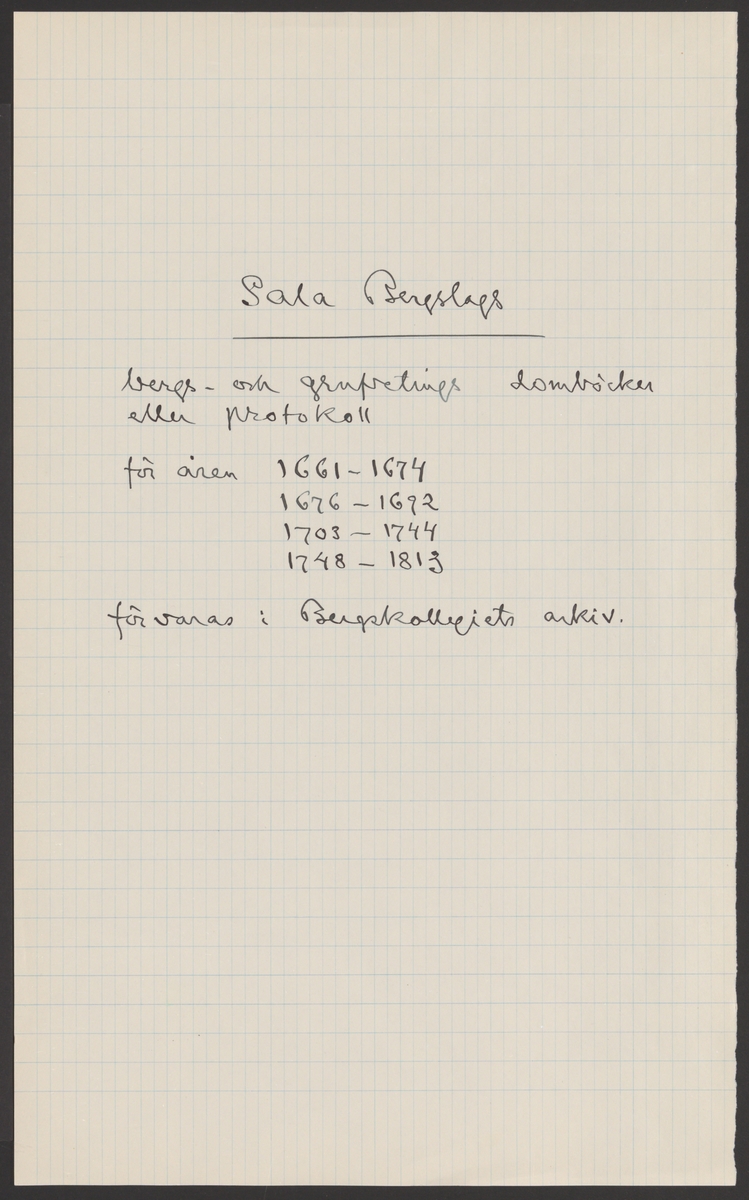 Sala Bergslags
bergs- och grufretings domböcker
eller protokoll
för åren 1661-1674
1676-1692
1703-1744
1748-1813
förvaras i Bergskollegiets arkiv.